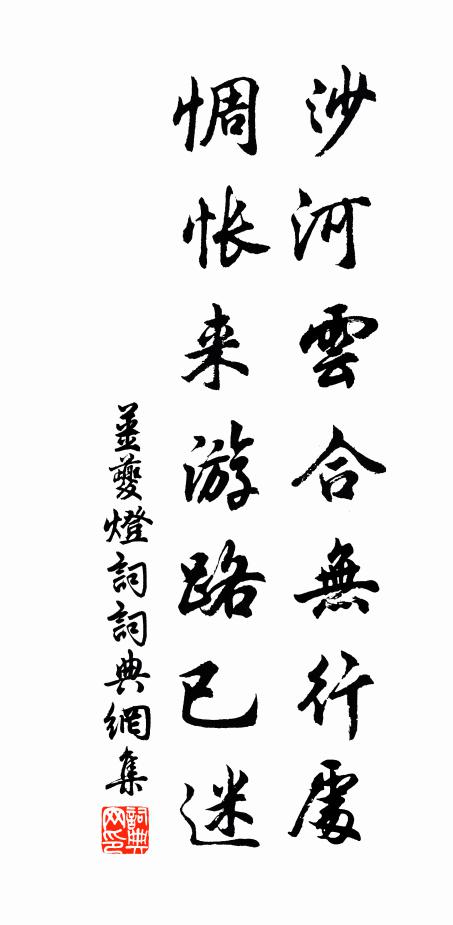 沙河雲合無行處
惆悵来游路已迷
姜夔燈詞詞典網集
詞典网印